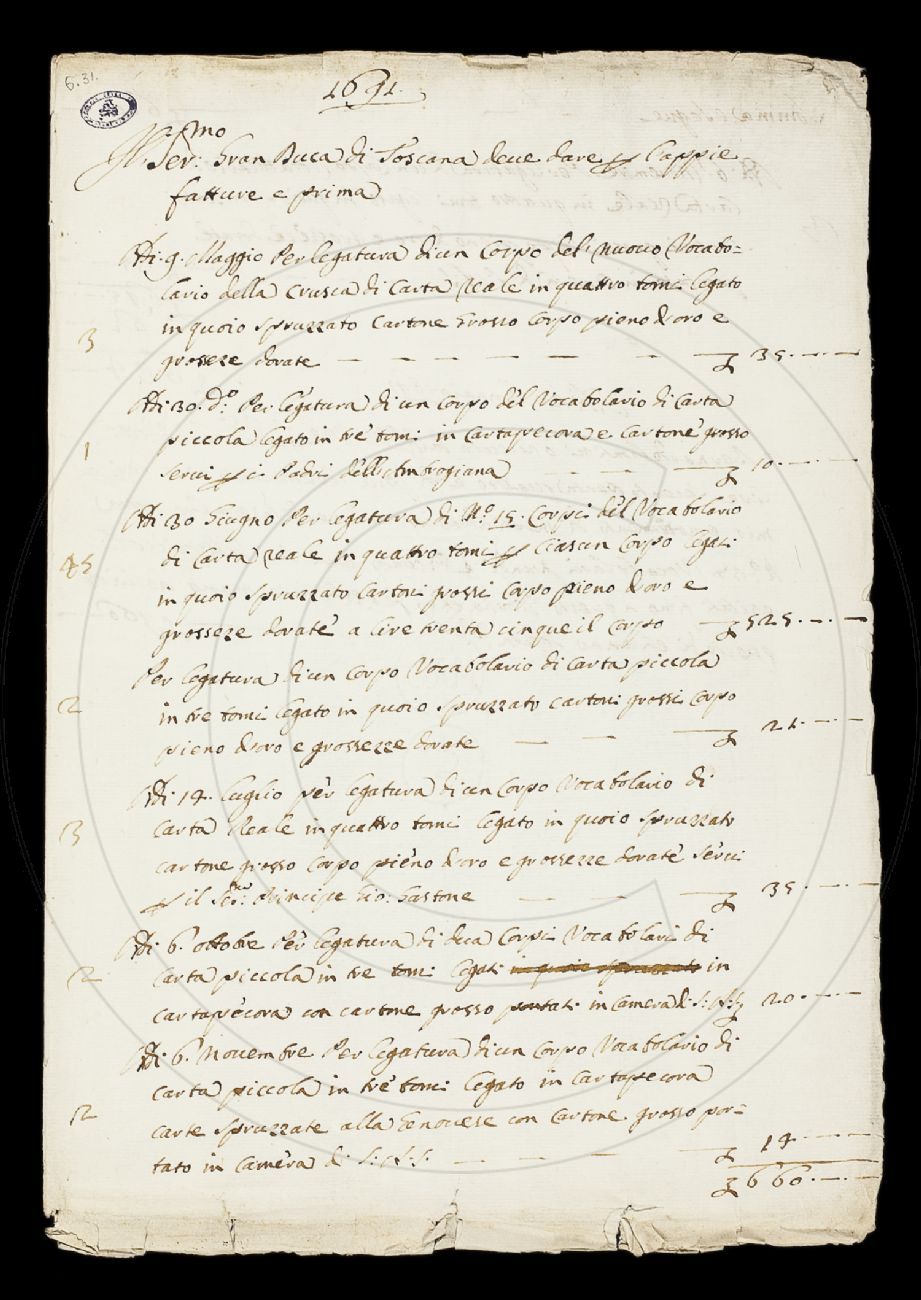 6.31.
1691.
Il Ser:mo Gran Duca di Toscana deve dare per l'appie
fatture e prima
Adi 9. Maggio Per legatura di un Corpo del nuovo Vocabo=
lario della Crusca di Carta reale in quattro tomi legato
in quoio spruzzato Cartone Grosso Corpo pieno d'oro e
3 grosseze dorate — — — — — — 35. — —
Adi 30. d.o Per legatura di un Corpo del Vocabolario di Carta
piccola legato in tre tomi in Cartapecora e Cartone grosso
1 servi per i Padri dell'Ambrogiana — — — 10. — —
Adi 30 Giugno Per legatura di N.o 15. Corpi del Vocabolario
45 di Carta reale in quattro tomi per Ciascun Corpo legati
in quoio spruzzato Cartoni grossi corpo pieno d'oro e
grosseze dorate a lire trenta cinque il corpo — 525. — —
Per legatura di un Corpo Vocabolario di Carta piccola
2 in tre tomi legato in quoio spruzzato cartoni grossi corpo
pieno d'oro e grossezze dorate — — — 21. — —
Adi 14. luglio per legatura di un Corpo Vocabolario di
3 carta Reale in quattro tomi legato in quoio spruzzato
cartone grosso Corpo pieno d'oro e grossezze dorate servi
per il Ser:mo Principe Gio: Gastone — — — 35. — —
Adi 6. ottobre Per legatura di dua Corpi Vocabolari di
2 carta piccola in tre tomi legati in quoio spruzzato in
cartapecora con cartone grosso portati in Camera di S: A: S: 20. — —
Adi 6. Novembre Per legatura di un Corpo Vocabolario di
carta piccola in tre tomi legato in Cartapecora
2 carte spruzzate alla Genovese con Cartone grosso por=
tato in Camera di S: A: S: — — — — 14. — —
660. — —